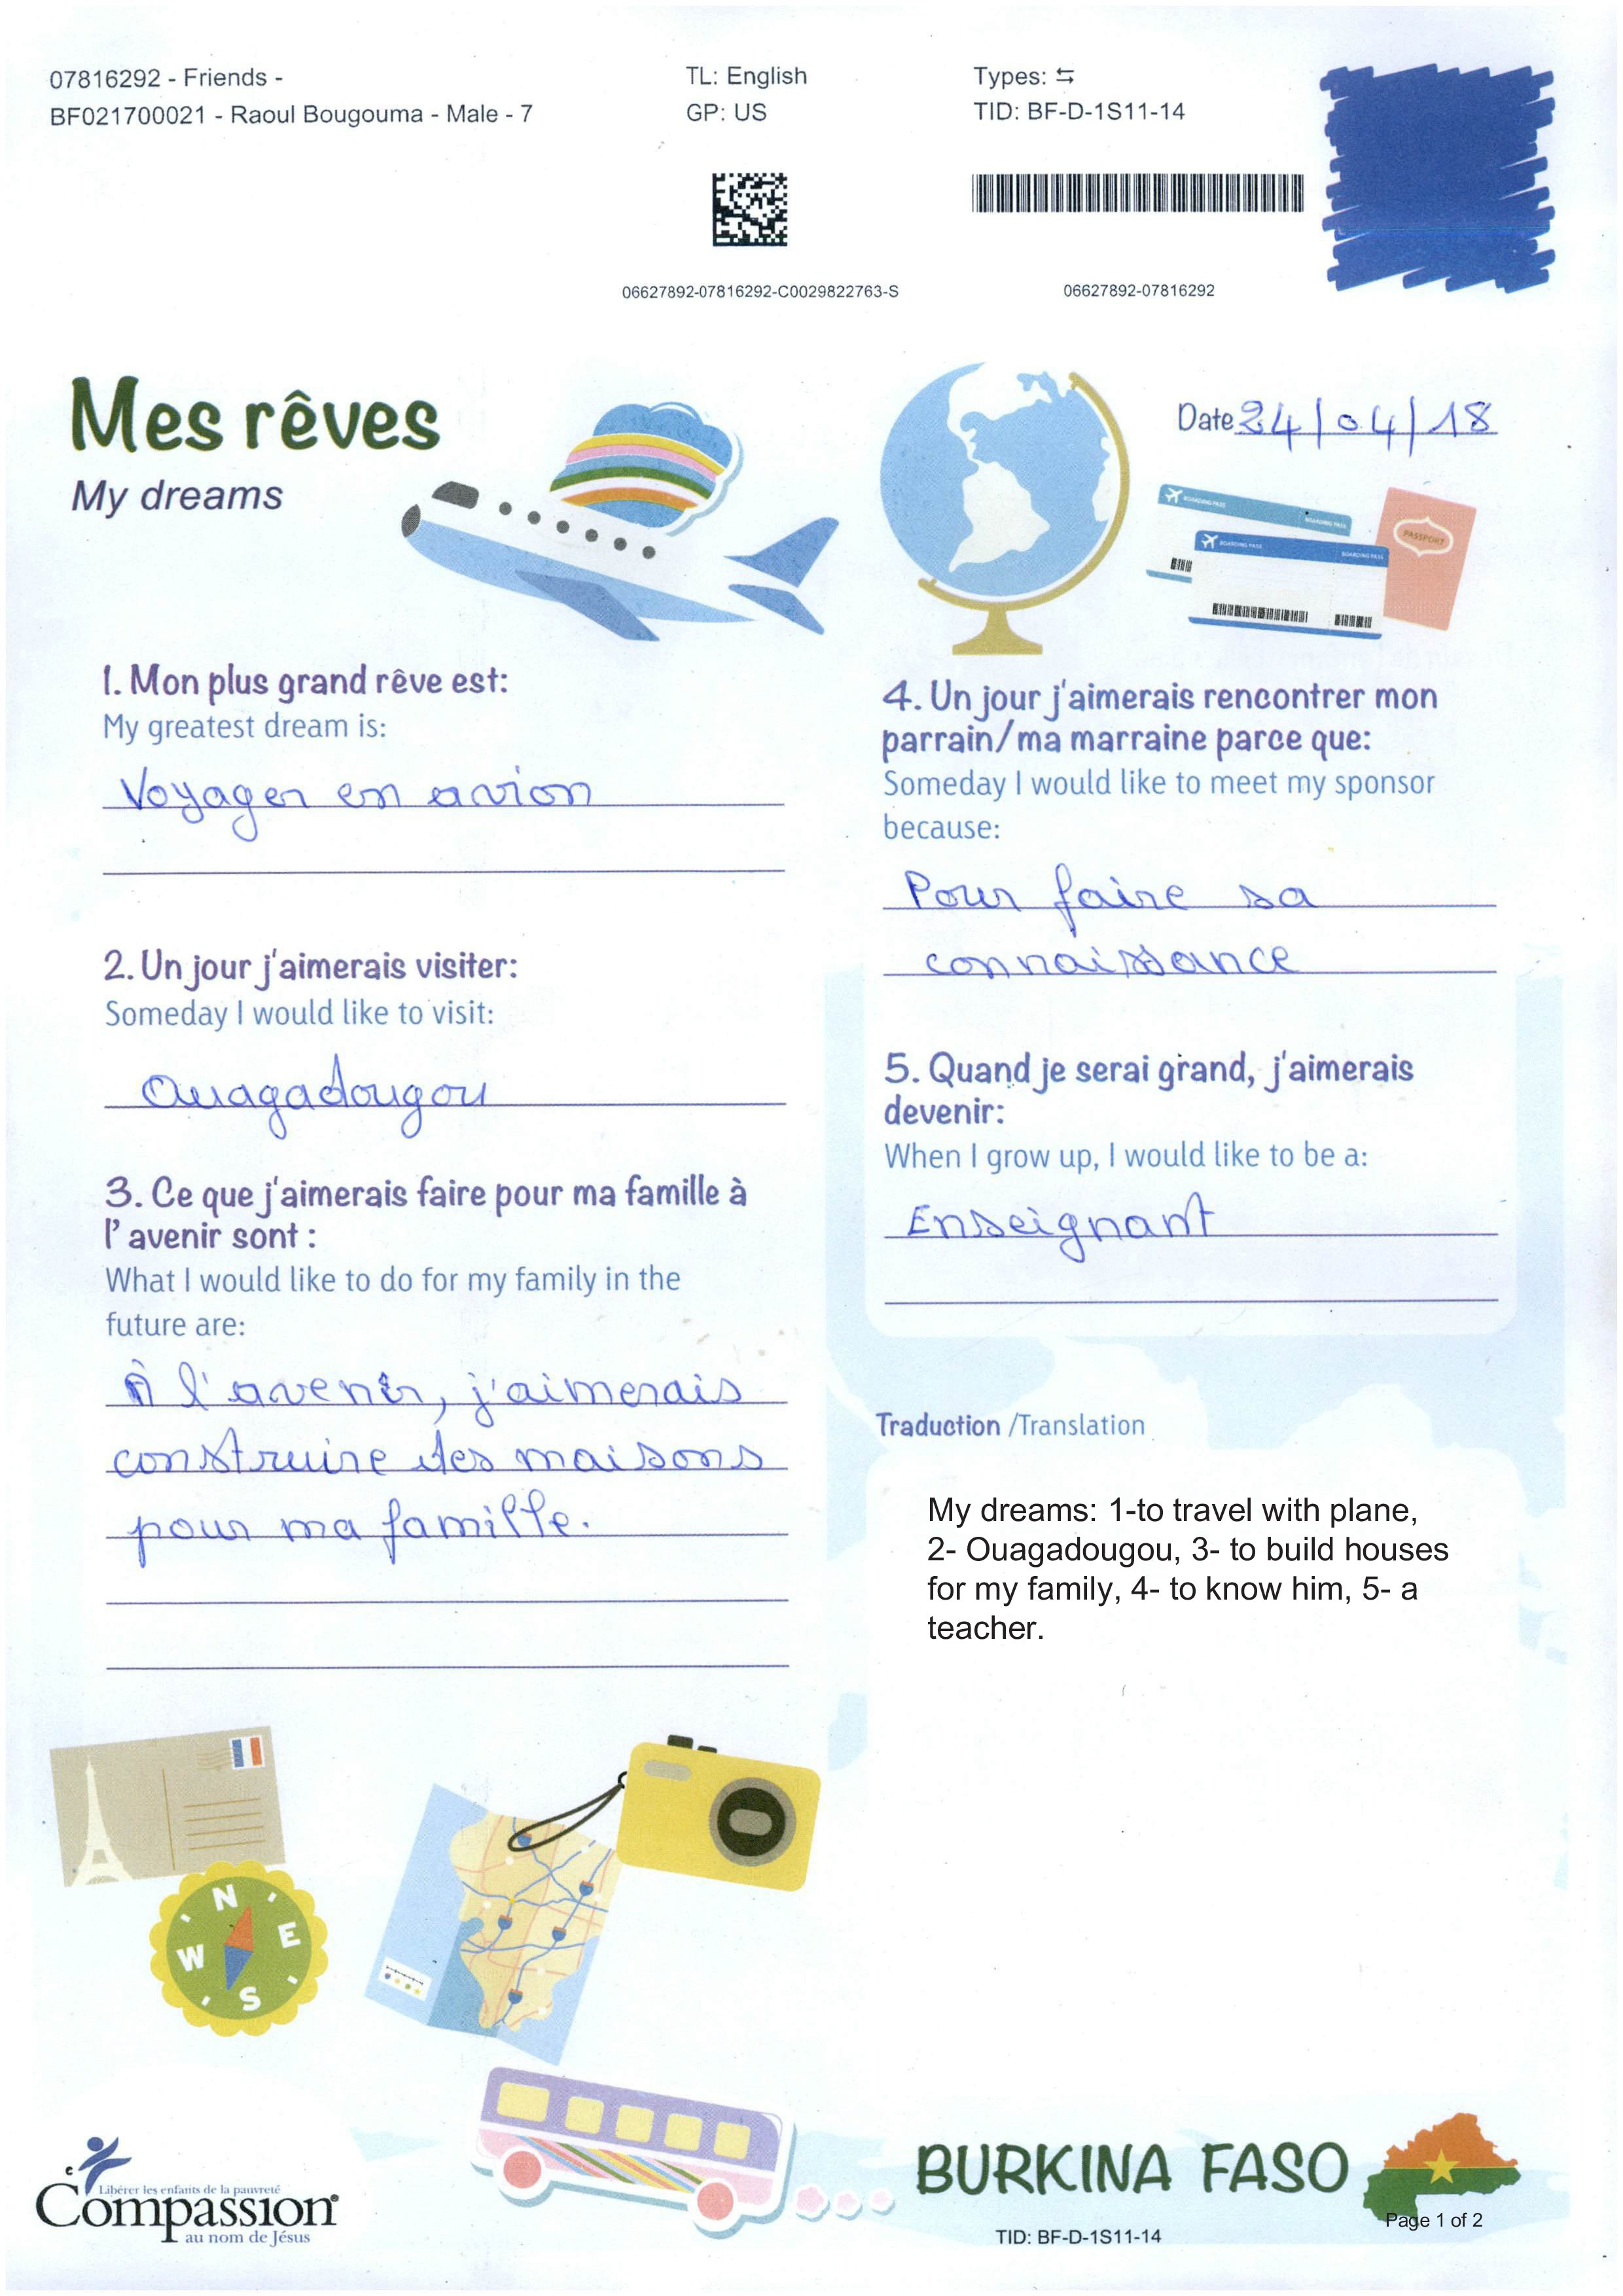 07816292 - Friends -
BF021700021 - Raoul Bougouma - Male - 7
TL: English
GP: US
Types: ⇆
TID: BF-D-1S11-14
06627892-07816292-C0029822763-S
06627892-07816292
Mes rêves
My dreams
Date 24/04/18
BOARDING PASS
BOARDING PASS
BOARDING PASS
BOARDING PASS
PASSPORT
1. Mon plus grand rêve est:
My greatest dream is:
Voyager en avion
2. Un jour j'aimerais visiter:
Someday I would like to visit:
Ouagadougou
3. Ce que j'aimerais faire pour ma famille à
l'avenir sont :
What I would like to do for my family in the
future are:
À l'avenir, j'aimerais
construire des maisons
pour ma famille.
4. Un jour j'aimerais rencontrer mon
parrain/ma marraine parce que:
Someday I would like to meet my sponsor
because:
Pour faire sa
connaissance
5. Quand je serai grand, j'aimerais
devenir:
When I grow up, I would like to be a:
Enseignant
Traduction /Translation
My dreams: 1-to travel with plane,
2- Ouagadougou, 3- to build houses
for my family, 4- to know him, 5- a
teacher.
N
E
W
S
Libérer les enfants de la pauvreté
Compassion
au nom de Jésus
BURKINA FASO
TID: BF-D-1S11-14
Page 1 of 2